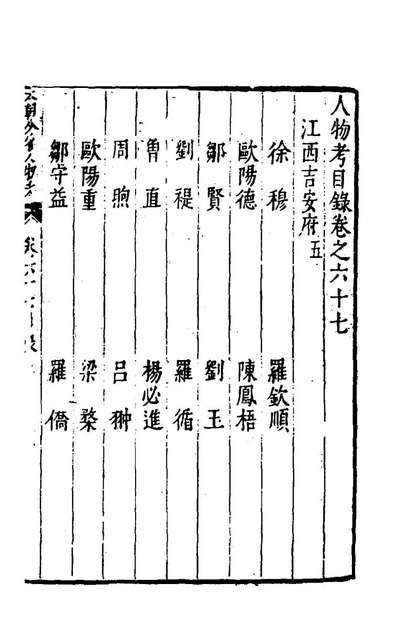 人物考目錄卷之六十七
江西吉安府五
徐穆　羅欽順
歐陽德　陳鳳梧
鄒賢　劉玉
劉禔　羅循
曾直　楊必進
周煦　呂翀
歐陽重　梁棨
鄒守益　羅僑